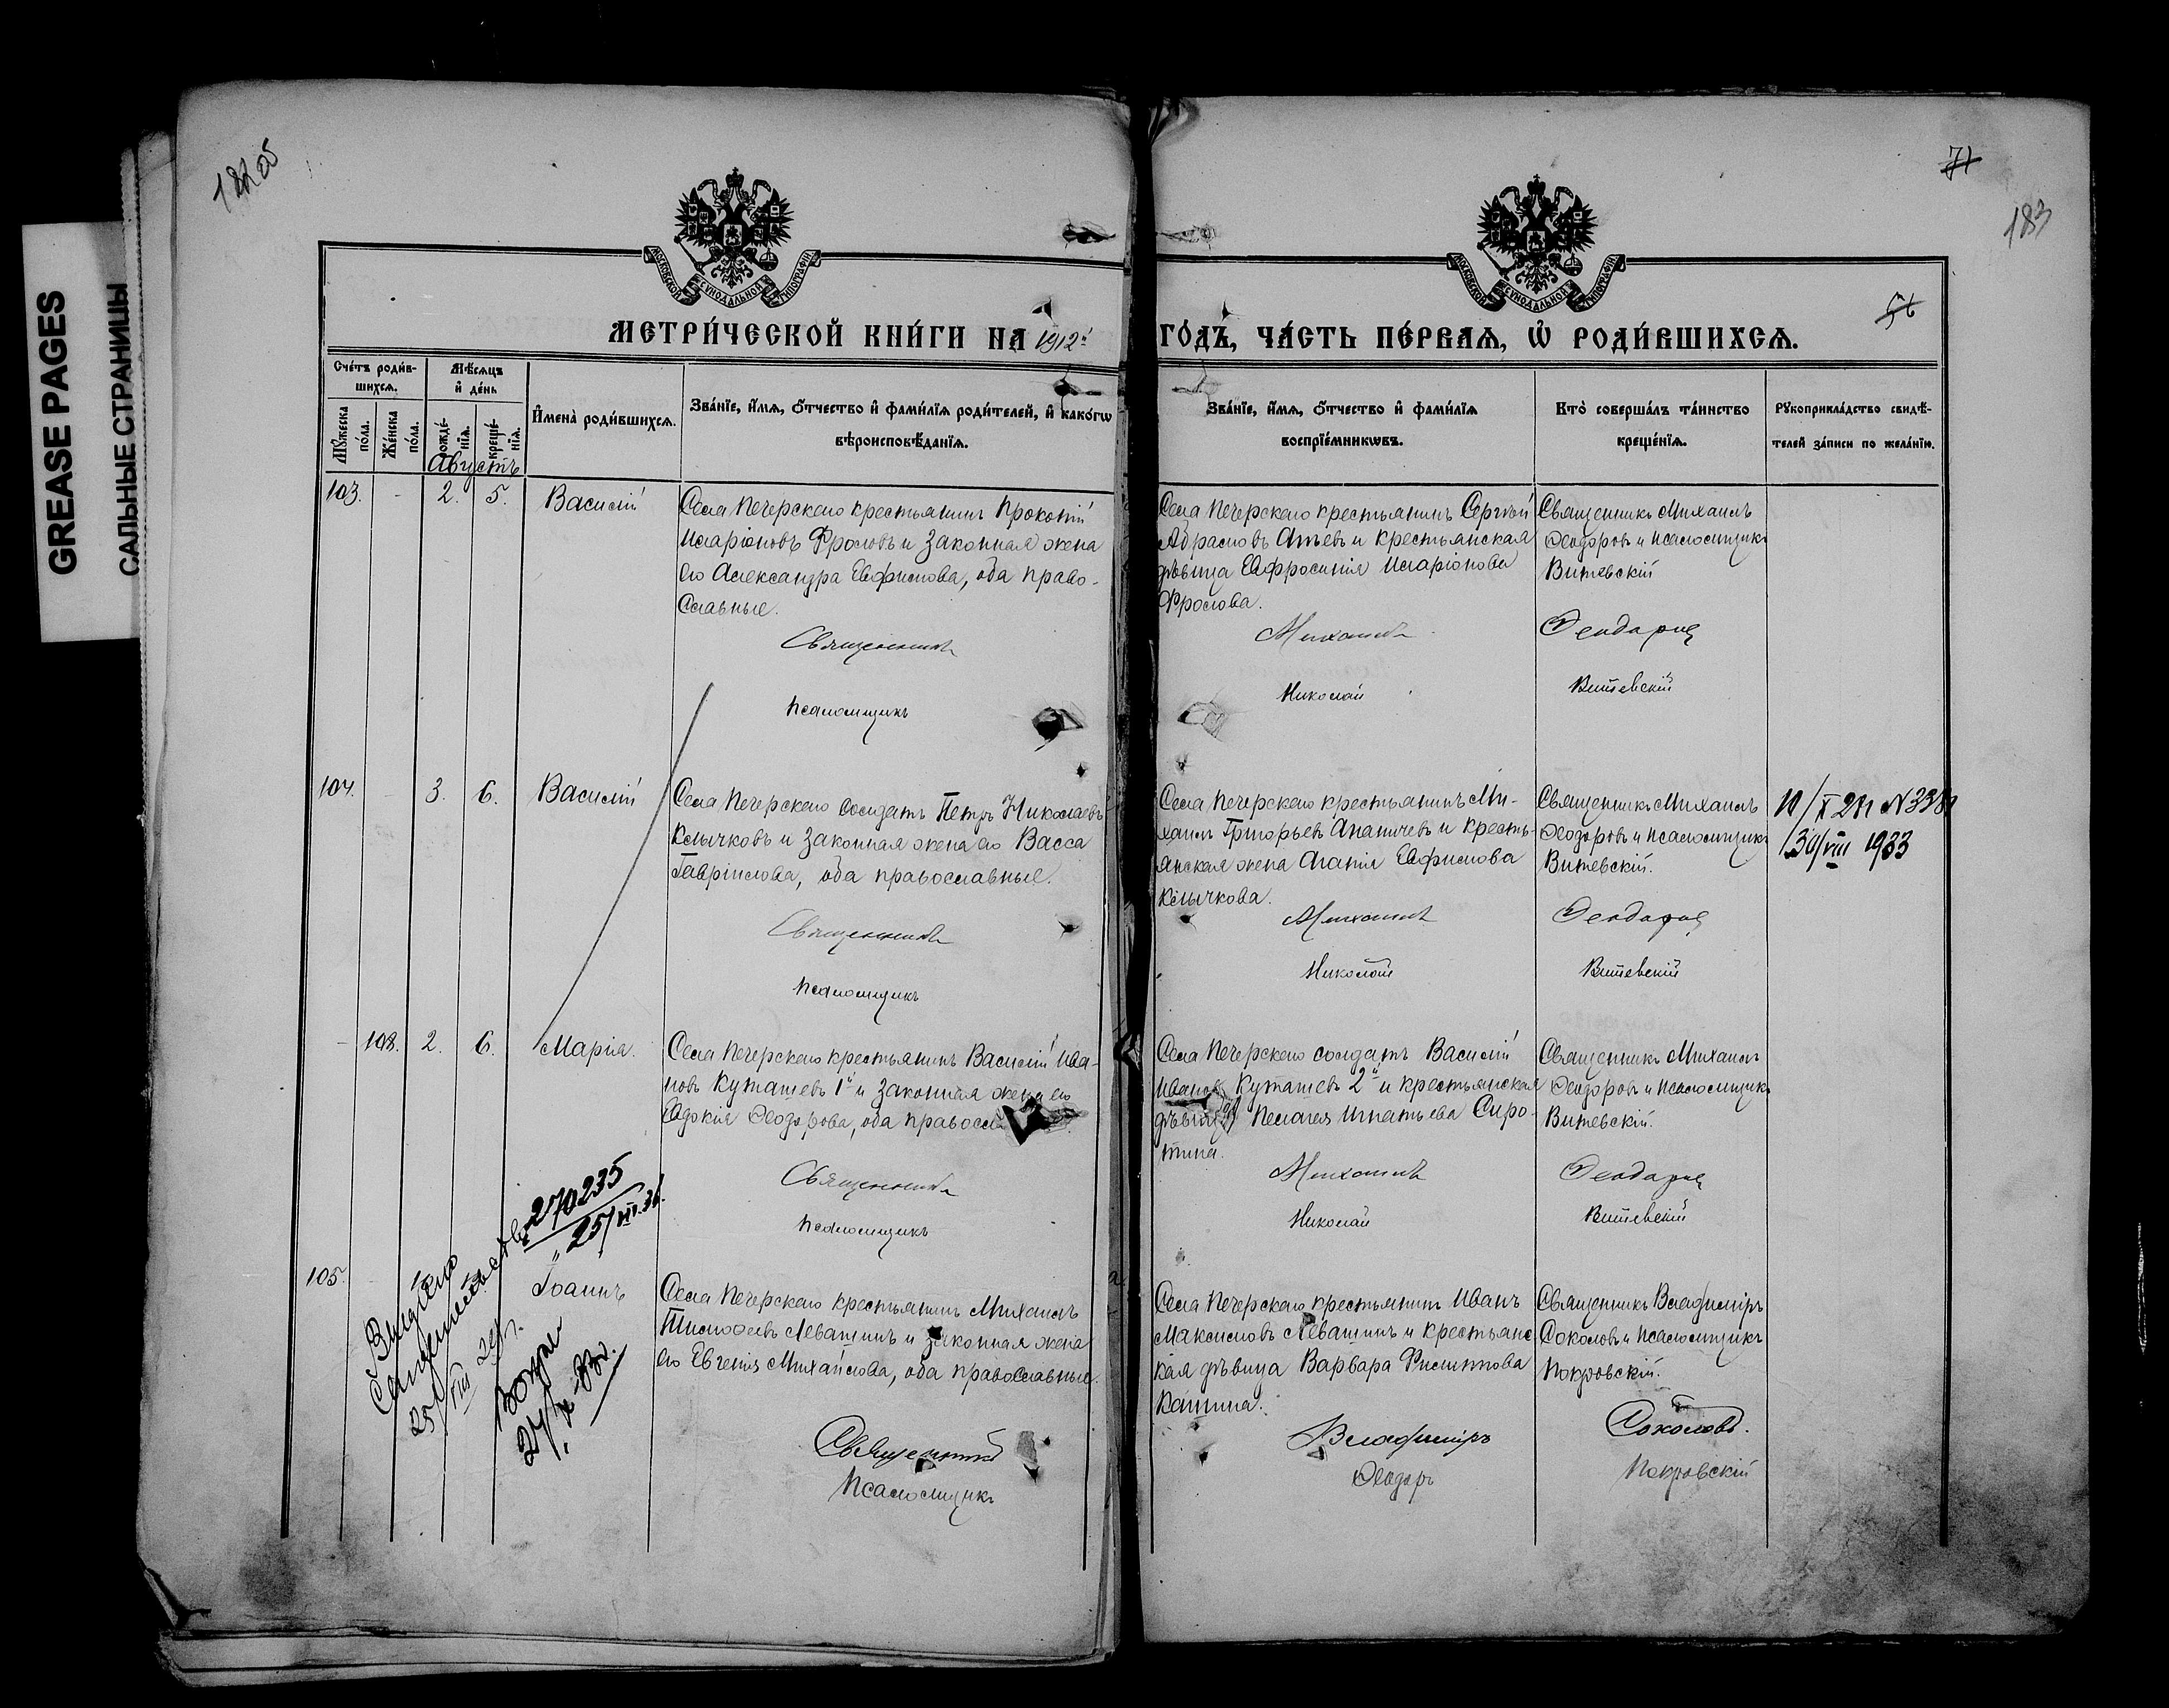 GREASE PAGES
САЛЬНЫЕ СТРАНИЦЫ
71
183
56
МОСКОВСКОЙ СѴНОДАЛЬНОЙ ТИПОГРАФІИ
МОСКОВСКОЙ СѴНОДАЛЬНОЙ ТИПОГРАФІИ
МЕТРИ́ЧЕСКОЙ КНИ́ГИ НА 1912й
ГО́ДЪ, ЧА́СТЬ ПЕ́РВАѦ, Ѡ҆ РОДИ́ВШИХСѦ.
Сче́тъ роди́в-
шихсѧ.
Мꙋ́жеска по́ла.
Же́нска по́ла.
Мѣ́сѧцъ
и҆ де́нь
рожде́-
нїѧ.
креще́-
нїѧ.
И҆мена̀ роди́вшихсѧ.
Зва́нїе, и҆́мѧ, ѻ҆́тчество и҆ фами́лїѧ роди́телей, и҆ како́гѡ
вѣроисповѣ́данїѧ.
Зва́нїе, и҆́мѧ, ѻ҆́тчество и҆ фами́лїѧ
воспрїе́мникѡвъ.
Кто̀ соверша́лъ та́инство
креще́нїѧ.
Рꙋкоприкла́дство свидѣ́-
телей за́писи по жела́нїю.
Августъ
103. - 2. 5. Василій
Села Печерскаго крестьянинъ Прокопій
Иларіоновъ Фроловъ и законная жена
его Александра Евфимова, оба право-
славные.
Священникъ
Псаломщикъ
Села Печерскаго крестьянинъ Сергѣй
Абрамовъ и крестьянская
дѣвица Евфросинія Иларіонова
Фролова.
Михаилъ
Николай
Священникъ Михаилъ
Ѳеодоровъ и псаломщикъ
Витевскій
Ѳеодоровъ
Витевскій
104. 3. 6. Василій
Села Печерскаго солдатъ Петръ Николаевъ
Клычковъ и законная жена его Васса
Гавріилова, оба православные.
Священникъ
Псаломщикъ
Села Печерскаго крестьянинъ Ми-
хаилъ Григорьевъ Ананичевъ и кресть-
янская жена Агапія Евфимова
Клычкова.
Михаилъ
Николай
Священникъ Михаилъ
Ѳеодоровъ и псаломщикъ
Витевскій.
Ѳеодоровъ
Витевскій
30/VIII 1933
- 108. 2. 6. Марія.
Села Печерскаго крестьянинъ Василій Ива-
новъ Куташевъ 1й и законная жена его
Евдокія Ѳеодорова, оба правосл
Священникъ
Псаломщикъ
Села Печерскаго солдатъ Василій
Ивановъ Куташевъ 2й и крестьянская
дѣвица Пелагея Игнатьева Сиро-
тина.
Михаилъ
Николай
Священникъ Михаилъ
Ѳеодоровъ и псаломщикъ
Витевскій.
Ѳеодоровъ
Витевскій
270235
25/VII.36.
105. Іоаннъ
Села Печерскаго крестьянинъ Михаилъ
Тимоѳеевъ Левашинъ и законная жена
его Евгенія Михайлова, оба православные.
Священникъ
Псаломщикъ
Села Печерскаго крестьянинъ Иванъ
Максимовъ Левашинъ и крестьянс
кая дѣвица Варвара Филиппова
Кашина.
Владиміръ
Ѳеодоръ
Священникъ Владиміръ
Соколовъ и псаломщикъ
Покровскій.
Соколовъ.
Покровскій